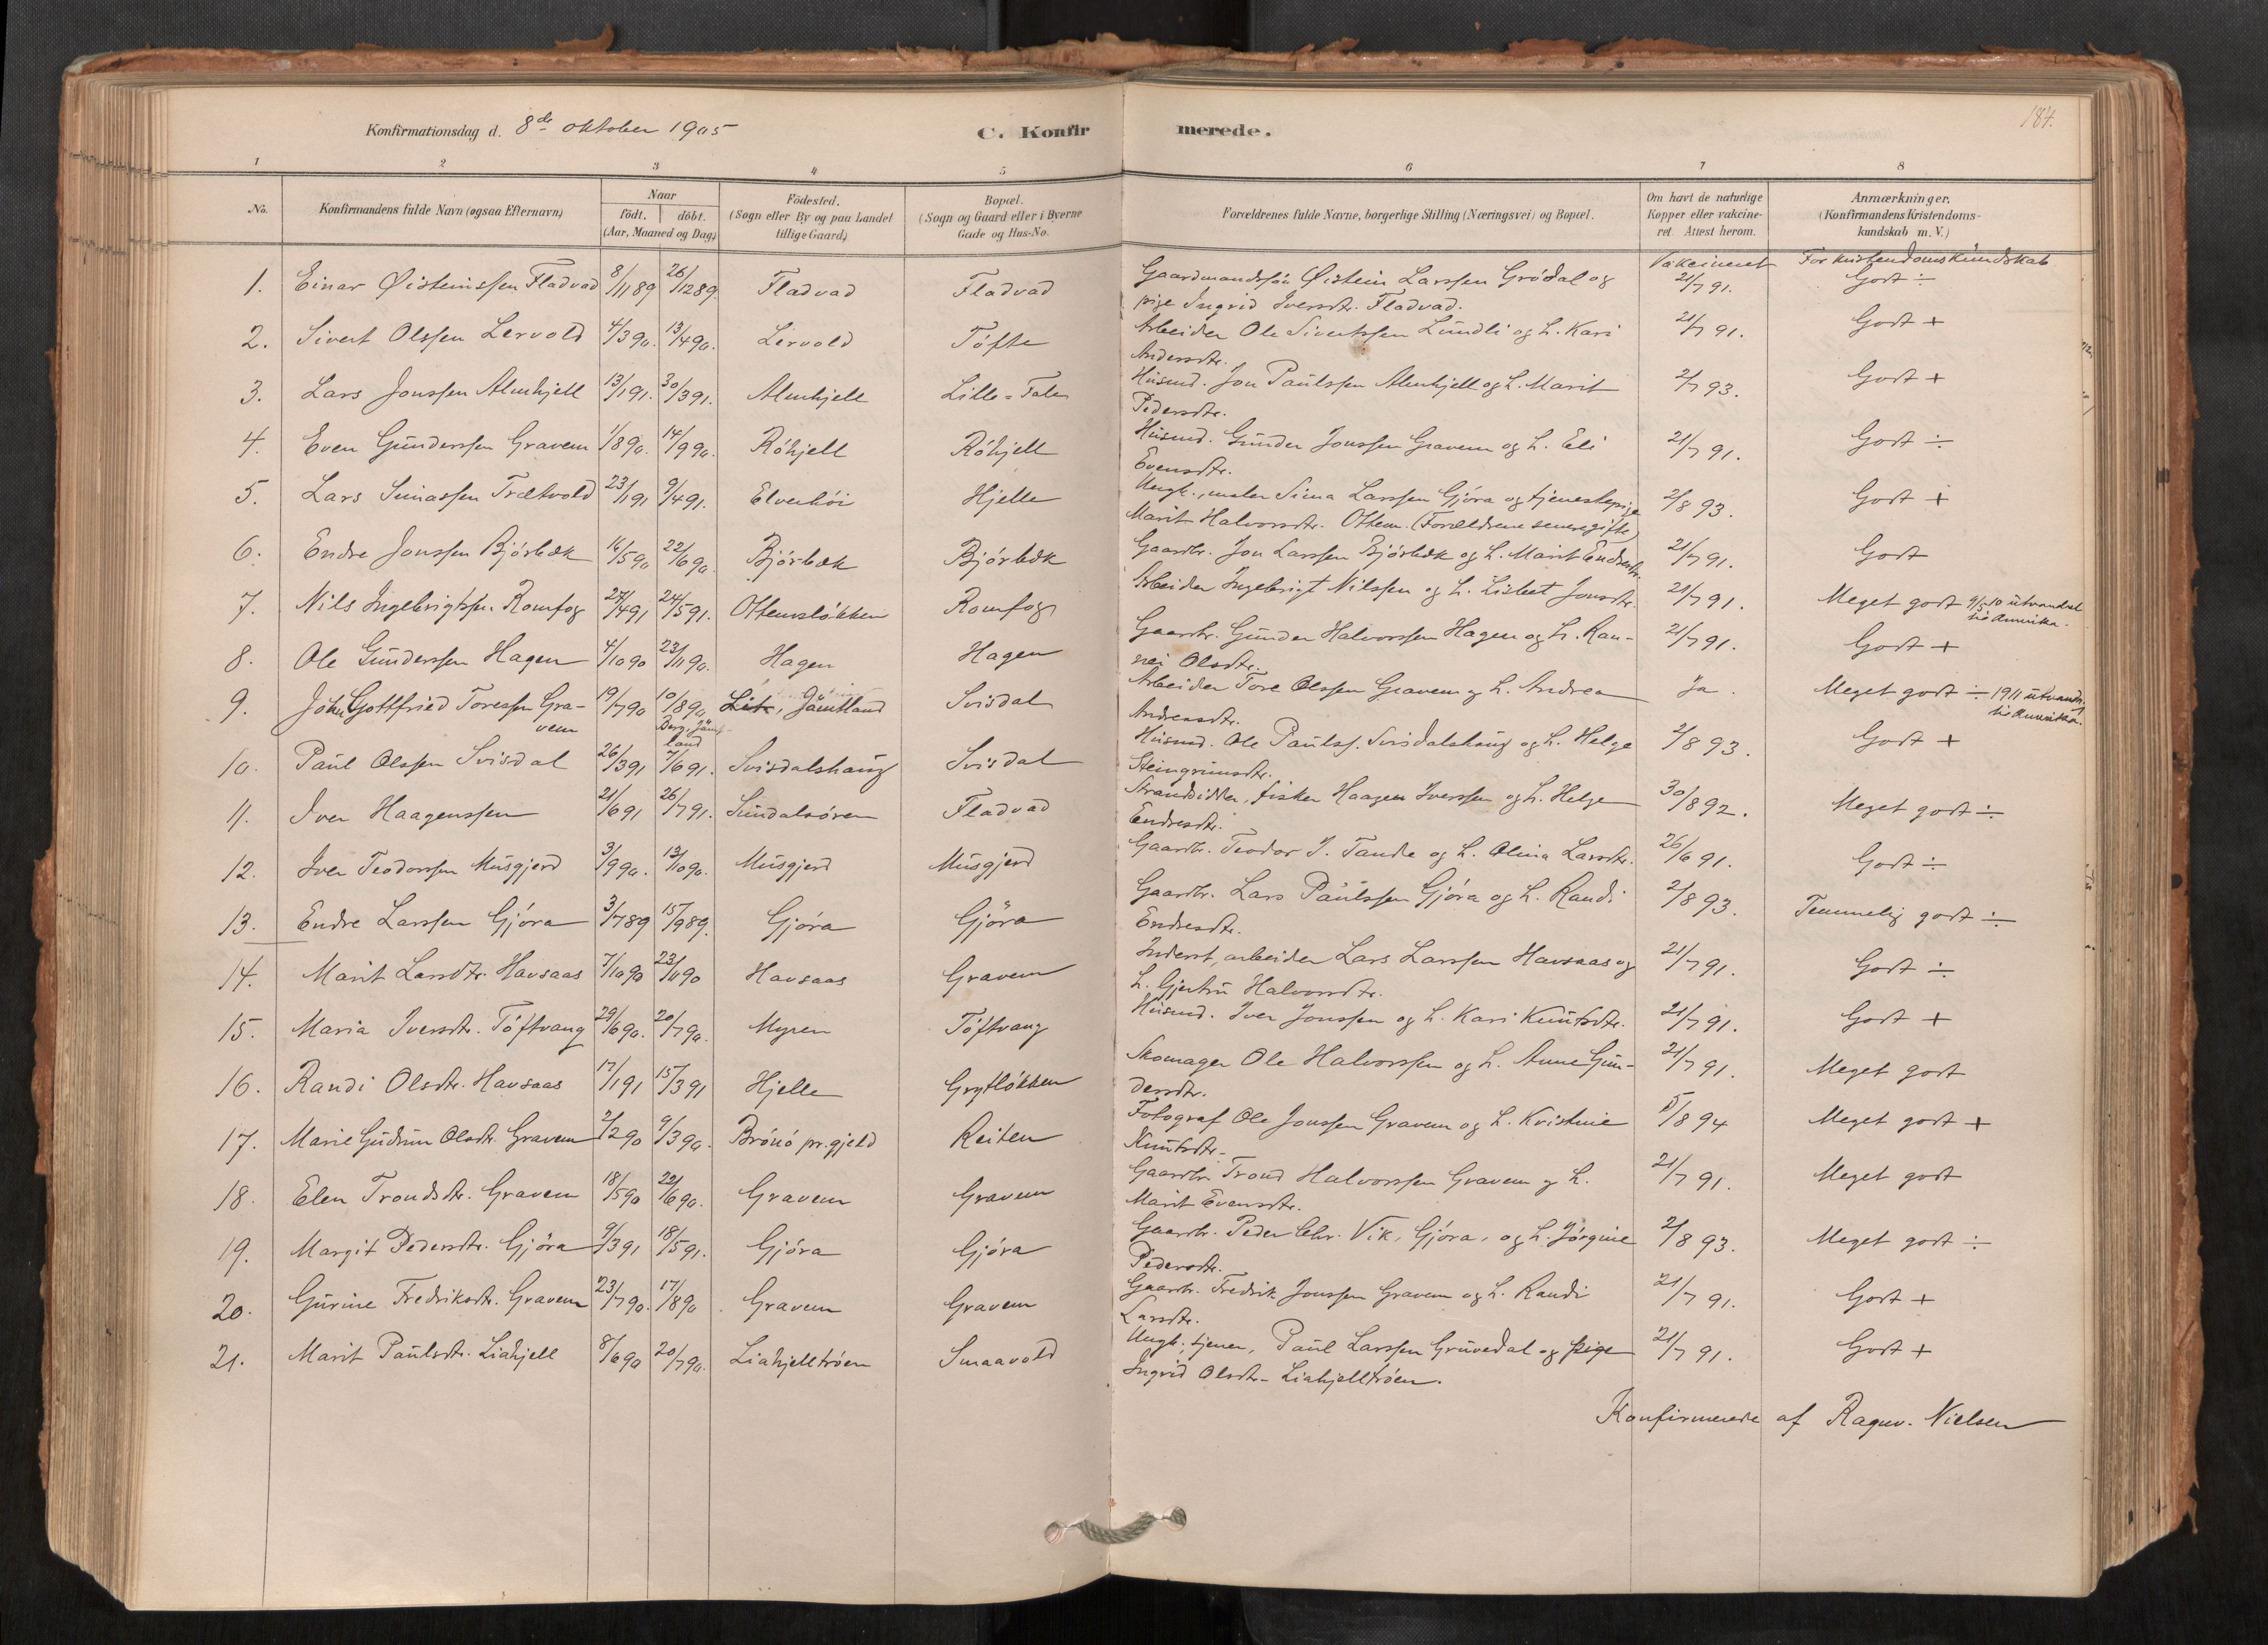 Konfirmationsdag d. 8de oktober 1905 C. Konfirmerede. 184.
1 2 3 4 5 6 7 8
No. Konfirmandens fulde Navn (ogsaa Efternavn) Naar födt. döbt. (Aar, Maaned og Dag.) Födested. (Sogn eller By og paa Landet tillige Gaard.) Bopæl. (Sogn og Gaard eller i Byerne Gade og Hus-No. Forældrenes fulde Navne, borgerlige Stilling (Næringsvei) og Bopæl. Om havt de naturlige Kopper eller vakcineret. Attest herom. Anmærkninger. (Konfirmandens Kristendomskundskab m. V.)
Vakcineret For kristendomskundskab
1. Einar Øisteinssen Fladvad 8/11 89 26/12 89. Fladvad Fladvad Gaardmandssøn Øistein Larssen Grödal og 21/7 91. Godt ÷
pige Ingrid Iversdtr. Fladvad.
2. Sivert Olssen Lervold 4/3 90. 13/4 90. Lervold Töfte Arbeider Ole Sivertssen Lundli og h. Kari 21/7 91. Godt +
Andersdtr.
3. Lars Jonssen Almhjell 13/1 91. 30/3 91. Almhjell Lille-Fale Husmd. Jon Paulssen Almhjell og h. Marit 2/7 93. Godt +
Pedersdtr.
4. Even Gunderssen Gravem 1/8 90. 14/9 90. Röhjell Röhjell Husmd. Gunder Jonssen Gravem og h. Eli 21/7 91. Godt ÷
Evensdtr.
5. Lars Simassen Trætvold 23/1 91 9/4 91. Elverhöi Hjelle Ungk., maler Sima Larssen Gjöra og tjenestepige 2/8 93. Godt +
Marit Halvorsdtr. Ottem. (Forældrene senere gifte)
6. Endre Jonssen Bjórbæk 16/5 90 22/6 90. Bjórbæk Bjórbæk Gaardbr. Jon Larssen Bjórbæk og h. Marit Endresdtr. 21/7 91. Godt
7. Nils Ingebrigtssen Romfog 27/4 91 24/5 91. Ottemsløkken Romfog Arbeider Ingebrigt Nilssen og h. Lisbet Jonsdtr. 21/7 91. Meget godt 9/5 10 utvandret
til Amerika.
8. Ole Gunderssen Hagen 4/10 90 23/11 90. Hagen Hagen Gaardbr. Gunder Halvorssen Hagen og h. Ran- 21/7 91. Godt +
nei Olsdtr.
9. John Gottfried Toressen Gra- 19/7 90 10/8 90 Lit, Jämtland Svisdal Arbeider Tore Olssen Gravem og h. Andrea Ja. Meget godt ÷ 1911 utvandr.
vem Berg, Jämt- Andreasdtr. til Amerika.
land
10. Paul Olssen Svisdal 26/3 91 7/6 91. Svisdalshaug Svisdal Husmd. Ole Paulss. Svisdalshaug og h. Helge 2/8 93. Godt +
Steingrimsdtr.
11. Iver Haagenssen 21/6 91 26/7 91. Sundalsøren Fladvad Strandsidder, fisker Haagen Iverssen og h. Helge 30/8 92. Meget godt ÷
Endresdtr.
12. Iver Teodorssen Musgjerd 3/9 90. 13/10 90. Musgjerd Musgjerd Gaardbr. Teodor J. Tande og h. Olina Larsdtr. 26/6 91. Godt ÷
13. Endre Larssen Gjöra 3/7 89 15/9 89. Gjöra Gjöra Gaardbr. Lars Paulssen Gjöra og h. Randi 2/8 93. Temmelig godt ÷
Endresdtr.
14. Marit Larsdtr. Havsaas 7/10 90 23/11 90 Havsaas Gravem Inderst, arbeider Lars Larssen Havsaas og 21/7 91. Godt ÷
h. Gjertru Halvorsdtr.
15. Maria Iversdtr. Töftvang 29/6 90. 20/7 90. Myren Töftvang Husmd. Iver Jonssen og h. Kari Knutsdtr. 21/7 91. Godt +
16. Randi Olsdtr. Havsaas 17/1 91 15/3 91 Hjelle Grytløkken Skomager Ole Halvorssen og h. Anne Gun- 21/7 91. Meget godt
dersdtr.
17. Marie Gudrun Olsdtr. Gravem 2/2 90 9/3 90. Brónó pr.gjeld Reiten Fotograf Ole Jonssen Gravem og h. Kristine 5/8 94 Meget godt +
Knutsdtr.
18. Elen Trondsdtr. Gravem 18/5 90 22/6 90. Gravem Gravem Gaardbr. Trond Halvorssen Gravem og h. 21/7 91. Meget godt
Marit Evensdtr.
19. Margit Pedersdtr. Gjöra 9/3 91 18/5 91. Gjóra Gjóra Gaardbr. Peder Chr. Vik, Gjóra, og h. Jórgine 2/8 93. Meget godt ÷
Pedersdtr.
20. Gurine Fredriksdtr. Gravem 23/7 90. 17/8 90. Gravem Gravem Gaardbr. Fredrik Jonssen Gravem og h. Randi 21/7 91. Godt +
Larsdtr.
21. Marit Paulsdtr. Liahjell 8/6 90 20/7 90. Liahjelltröen Smaavold Ungk., tjener, Paul Larssen Gruvedal og pige 21/7 91. Godt +
Ingrid Olsdtr. Liahjelltröen.
Konfirmerede af Ragnv. Nielsen